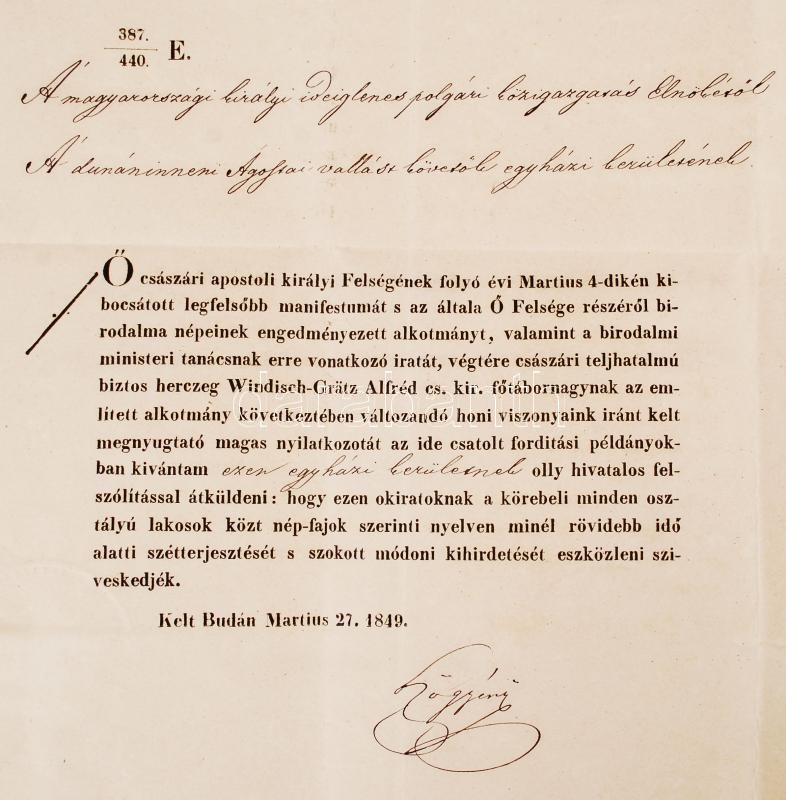 387.
440. E.
A magyarországi királyi ideiglenes polgári közigazgatás Elnökétől
A dunáninneni Ágostai vallást követők egyházi kerületének.
Ő császári apostoli királyi Felségének folyó évi Martius 4-dikén ki-
bocsátott legfelsőbb manifestumát s az általa Ő Felsége részéről bi-
rodalma népeinek engedményezett alkotmányt, valamint a birodalmi
ministeri tanácsnak erre vonatkozó iratát, végtére császári teljhatalmú
biztos herczeg Windisch-Grätz Alfréd cs. kir. főtábornagynak az em-
lített alkotmány következtében változandó honi viszonyaink iránt kelt
megnyugtató magas nyilatkozatát az ide csatolt forditási példányok-
ban kivántam ezen egyházi kerületnek olly hivatalos fel-
szólítással átküldeni: hogy ezen okiratoknak a körebeli minden osz-
tályú lakosok közt nép-fajok szerinti nyelven minél rövidebb idő
alatti szétterjesztését s szokott módoni kihirdetését eszközleni szi-
veskedjék.
Kelt Budán Martius 27. 1849.
Szögyény
darabanth